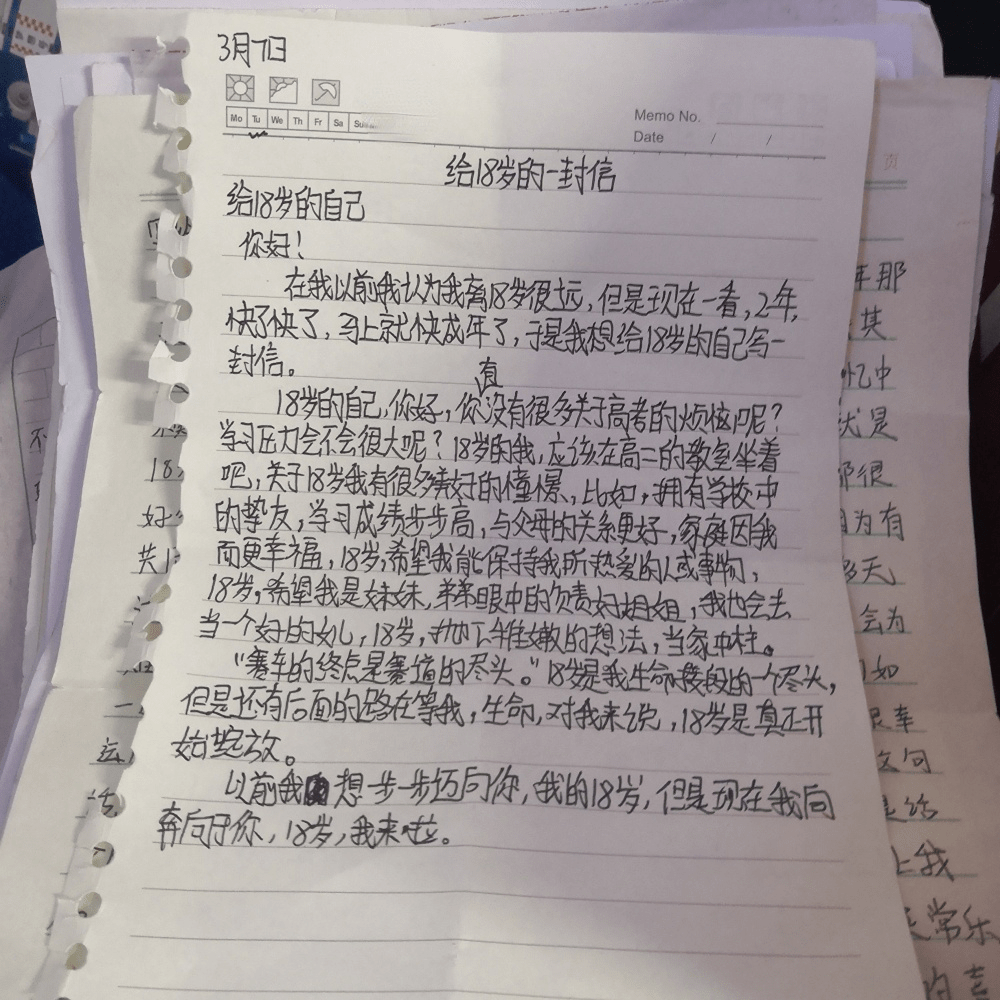 3月7日
Mo Tu We Th Fr Sa Su
Memo No.
Date / /
给18岁的一封信
给18岁的自己
你好！
在我以前我认为我离18岁很远，但是现在一看，2年，
快了快了，马上就快成年了，于是我想给18岁的自己写一
封信。
有
18岁的自己，你好，你没有很多关于高考的烦恼呢？
学习压力会不会很大呢？18岁的我，应该在高三的教室坐着
吧，关于18岁我有很多美好的憧憬，比如，拥有学校中
的挚友，学习成绩步步高，与父母的关系更好，家庭因我
而更幸福，18岁，希望我能保持我所热爱的人或事物，
18岁，希望我是妹妹，弟弟眼中的负责好姐姐，我也会去
当一个好的女儿，18岁，抛下稚嫩的想法，当家中柱。
“赛车的终点是赛道的尽头。”18岁是我生命接段的一个尽头，
但是还有后面的路在等我，生命，对我来说，18岁是真正开
始绽放。
以前我想一步一步迈向你，我的18岁，但是现在我向
奔向于你，18岁，我来啦。
页
年那
其
忆中
就是
那很
因为有
多天
会为
如
文句
是活
上我
天常乐
不
18
好
共
一
运
活